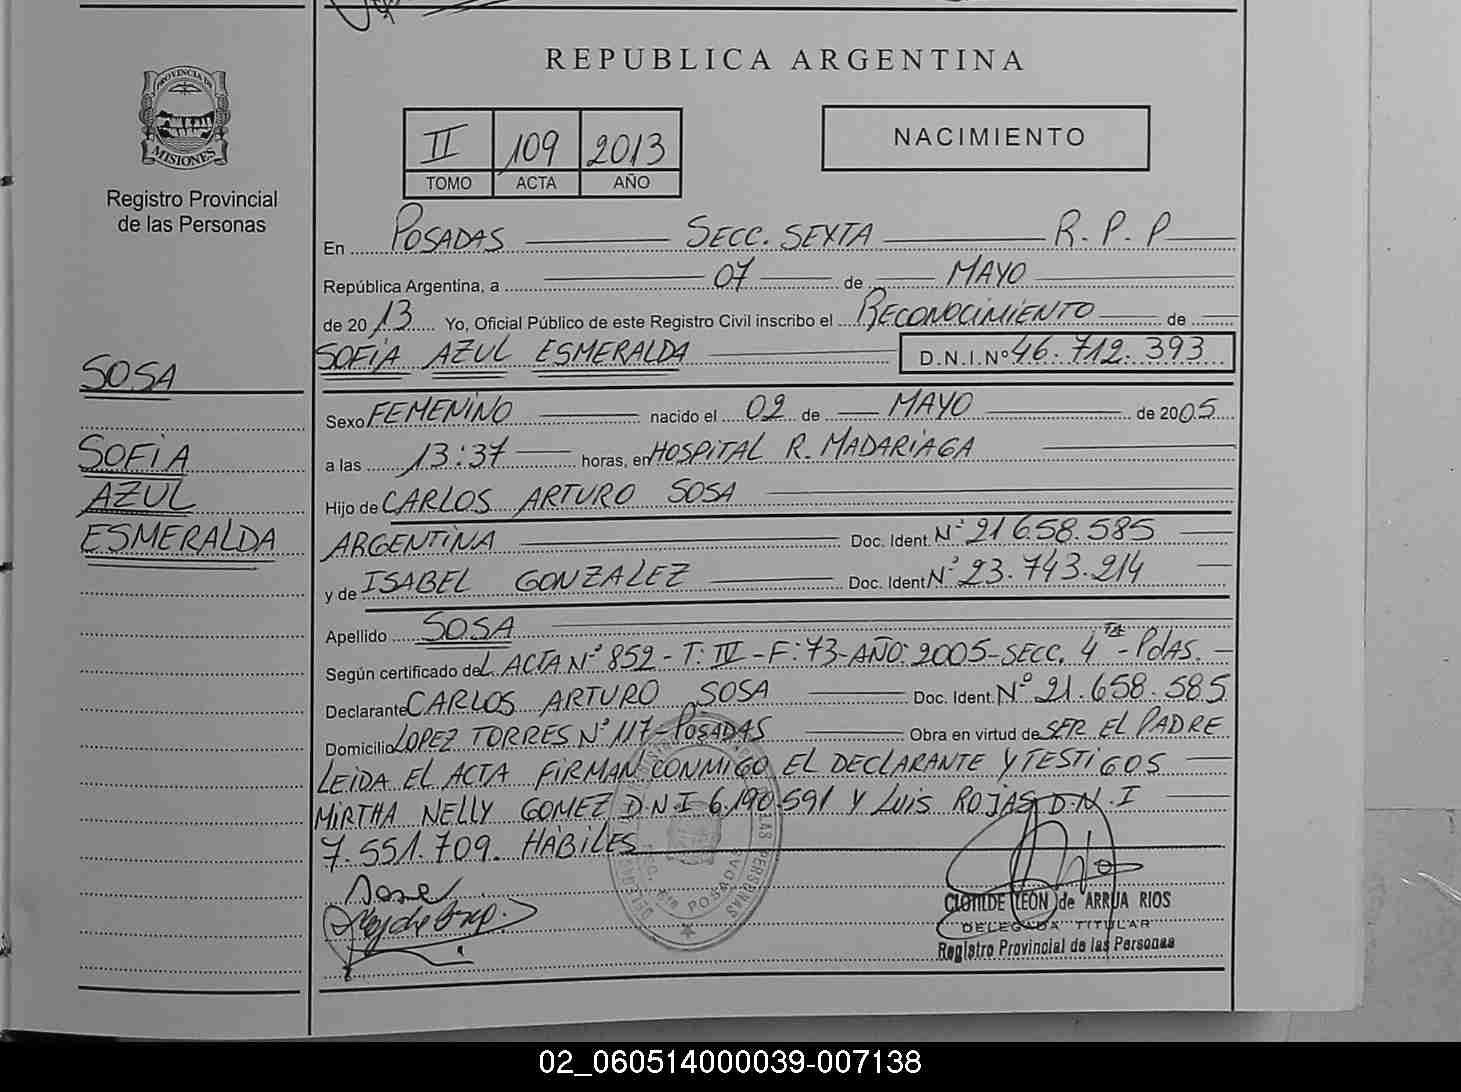 REPUBLICA ARGENTINA
PROVINCIA DE
MISIONES
Registro Provincial
de las Personas
II 109 2013
TOMO ACTA AÑO
NACIMIENTO
En POSADAS SECC. SEXTA R.P.P
República Argentina, a 07 de MAYO
de 2013 Yo, Oficial Público de este Registro Civil inscribo el RECONOCIMIENTO de
SOFIA AZUL ESMERALDA D.N.I.Nº 46.712.393
SOSA
SOFIA
AZUL
ESMERALDA
Sexo FEMENINO nacido el 02 de MAYO de 2005
a las 13:37 horas, en HOSPITAL R. MADARIAGA
Hijo de CARLOS ARTURO SOSA
ARGENTINA Doc. Ident. Nº 21658.585
y de ISABEL GONZALEZ Doc. Ident Nº 23.743.214
Apellido SOSA
Según certificado del ACTA Nº 852-T: IV-F:73-AÑO:2005-SECC. 4TA-PdAS.
Declarante CARLOS ARTURO SOSA Doc. Ident. Nº 21.658.585
Domicilio LOPEZ TORRES Nº 117-POSADAS Obra en virtud de SER EL PADRE
LEIDA EL ACTA FIRMAN CONMIGO EL DECLARANTE Y TESTIGOS
MIRTHA NELLY GOMEZ D.N.I 6.190.591 Y LUIS ROJAS D.N.I
7.551.709. HABILES
POSADAS
CLOTILDE LEON de ARRUA RIOS
DELEGADA TITULAR
Registro Provincial de las Personas
02_060514000039-007138